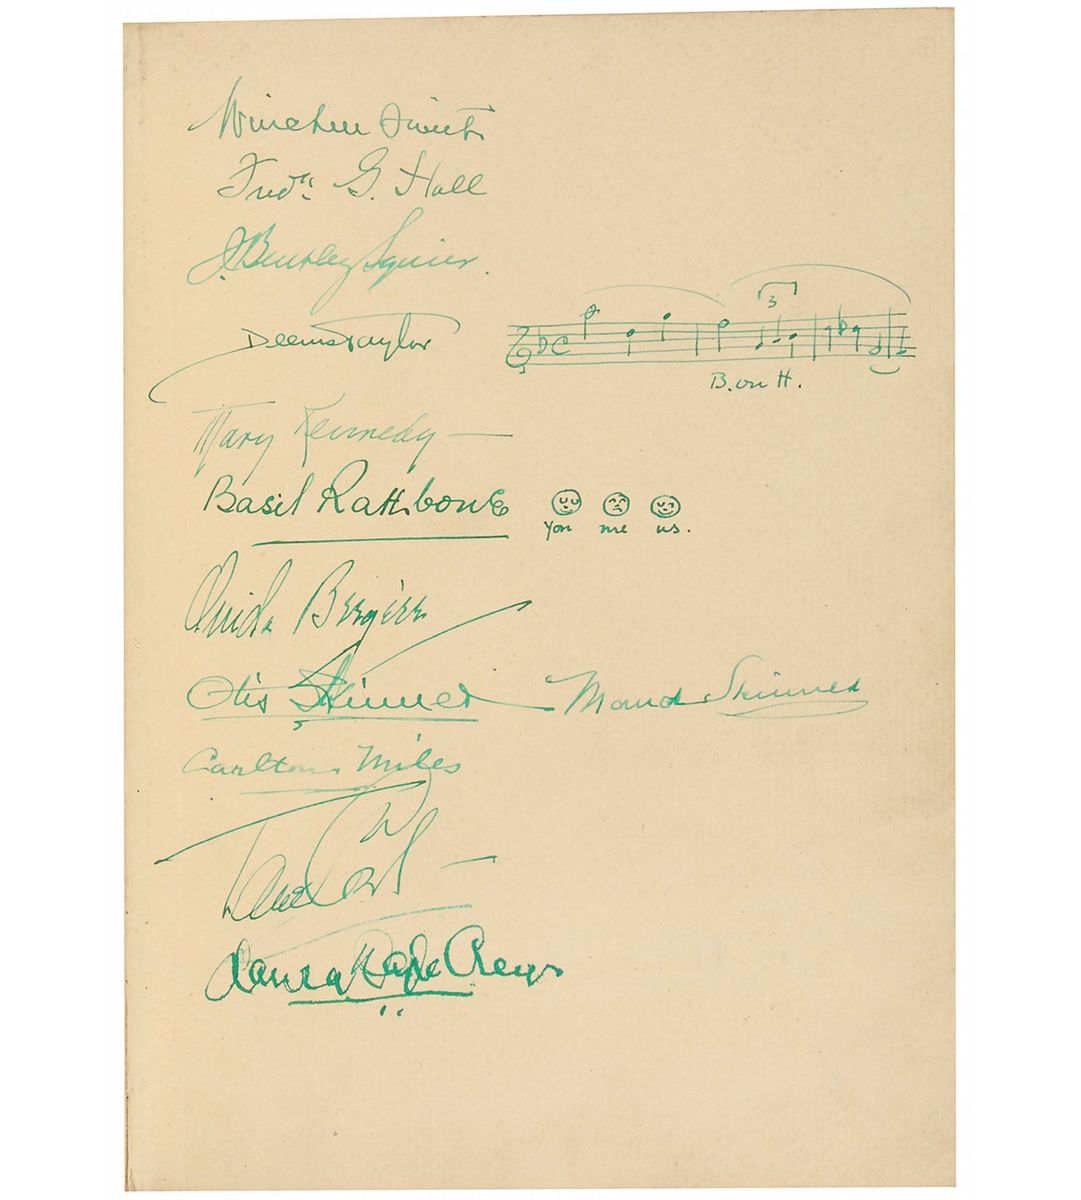 Winchell Smith
Fred'k G. Hall
J. Bentley Squier.
Deems Taylor
3
B. on H.
Mary Kennedy —
Basil Rathbone
You me us.
Ouida Bergère
Otis Skinner Maud Skinner
Carlton Miles
Laura Hope Crews